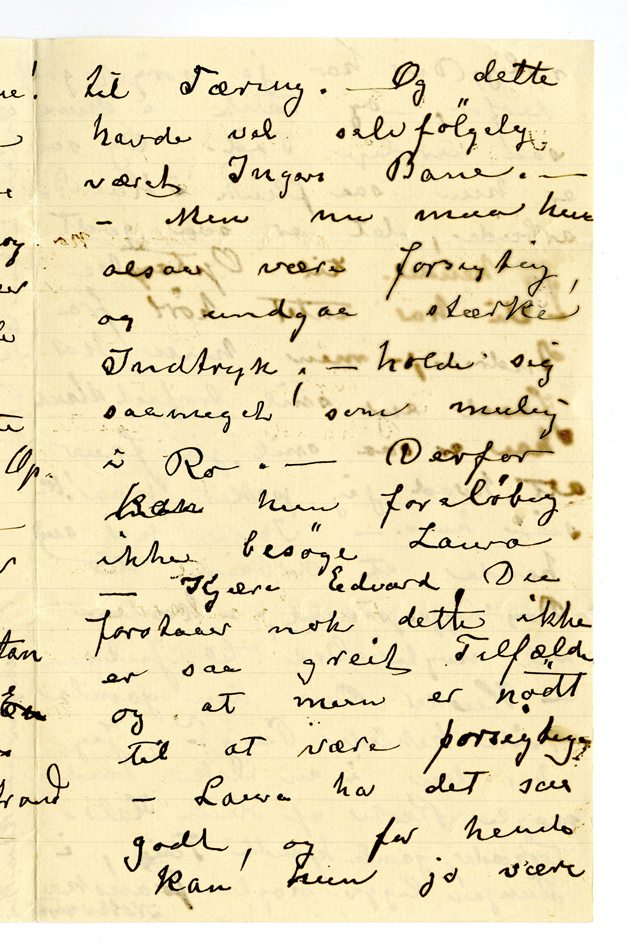 til Tæring. — Og dette
havde vel selvfölgelig
været Ingers Bane. —
– Men nu maa hun
ogsaa være forsigtig,
og undgaa stærke
Indtryk, – holde sig
saameget som mulig
i Ro. — Derfor
kan hun forelöbig
ikke besöge Laura
— Kjære Edvard, Du
forstaaer nok dette ikke
er saa greit Tilfælde
og at man er nödt
til at være forsigtig,
– Laura har det saa
godt, og for hende
kan hun jo være